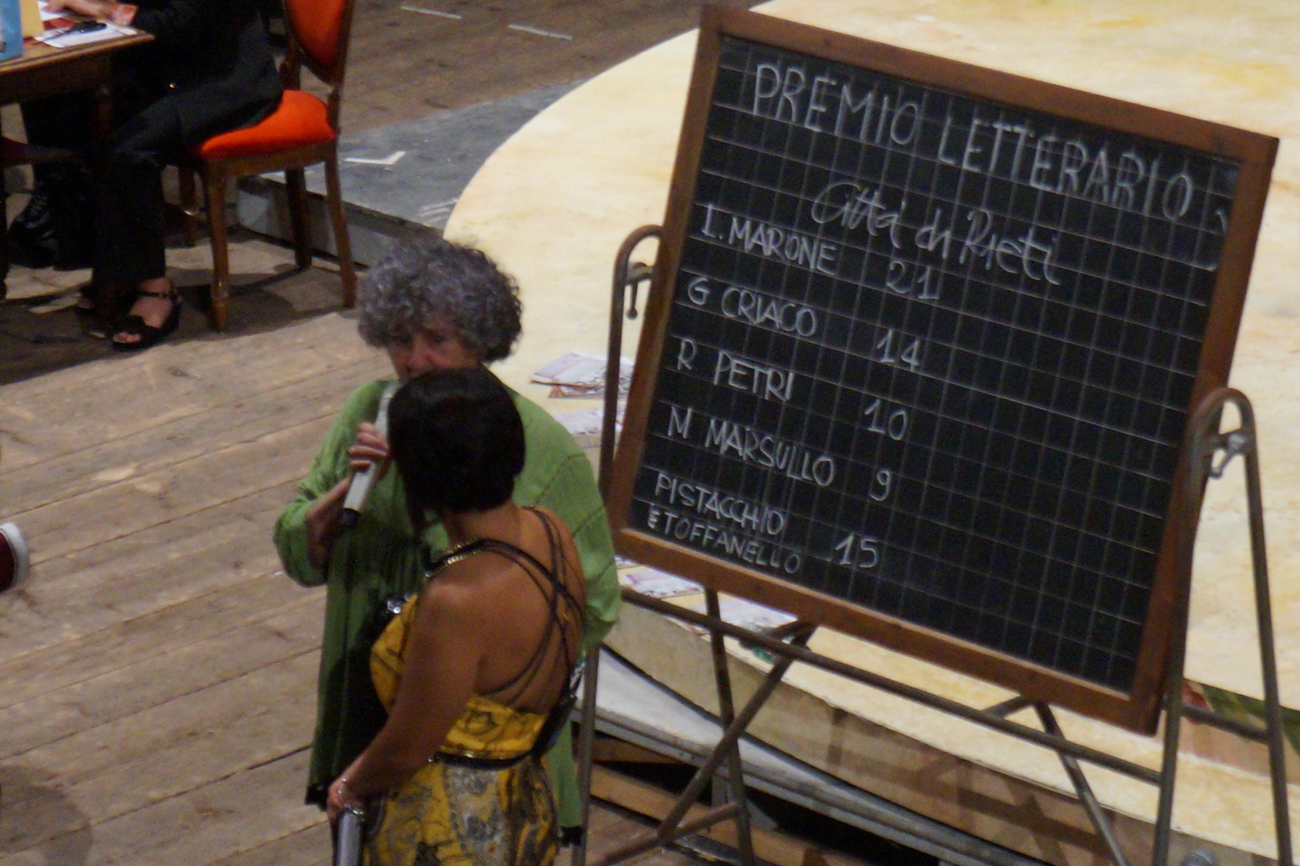 PREMIO LETTERARIO
Città di Rieti
I. MARONE 21
G CRIACO 14
R PETRI 10
M MARSULLO 9
PISTACCHIO
E TOFFANELLO 15